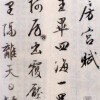 房宮賦
王畢四海一
阿房出覆壓
里隔離天日